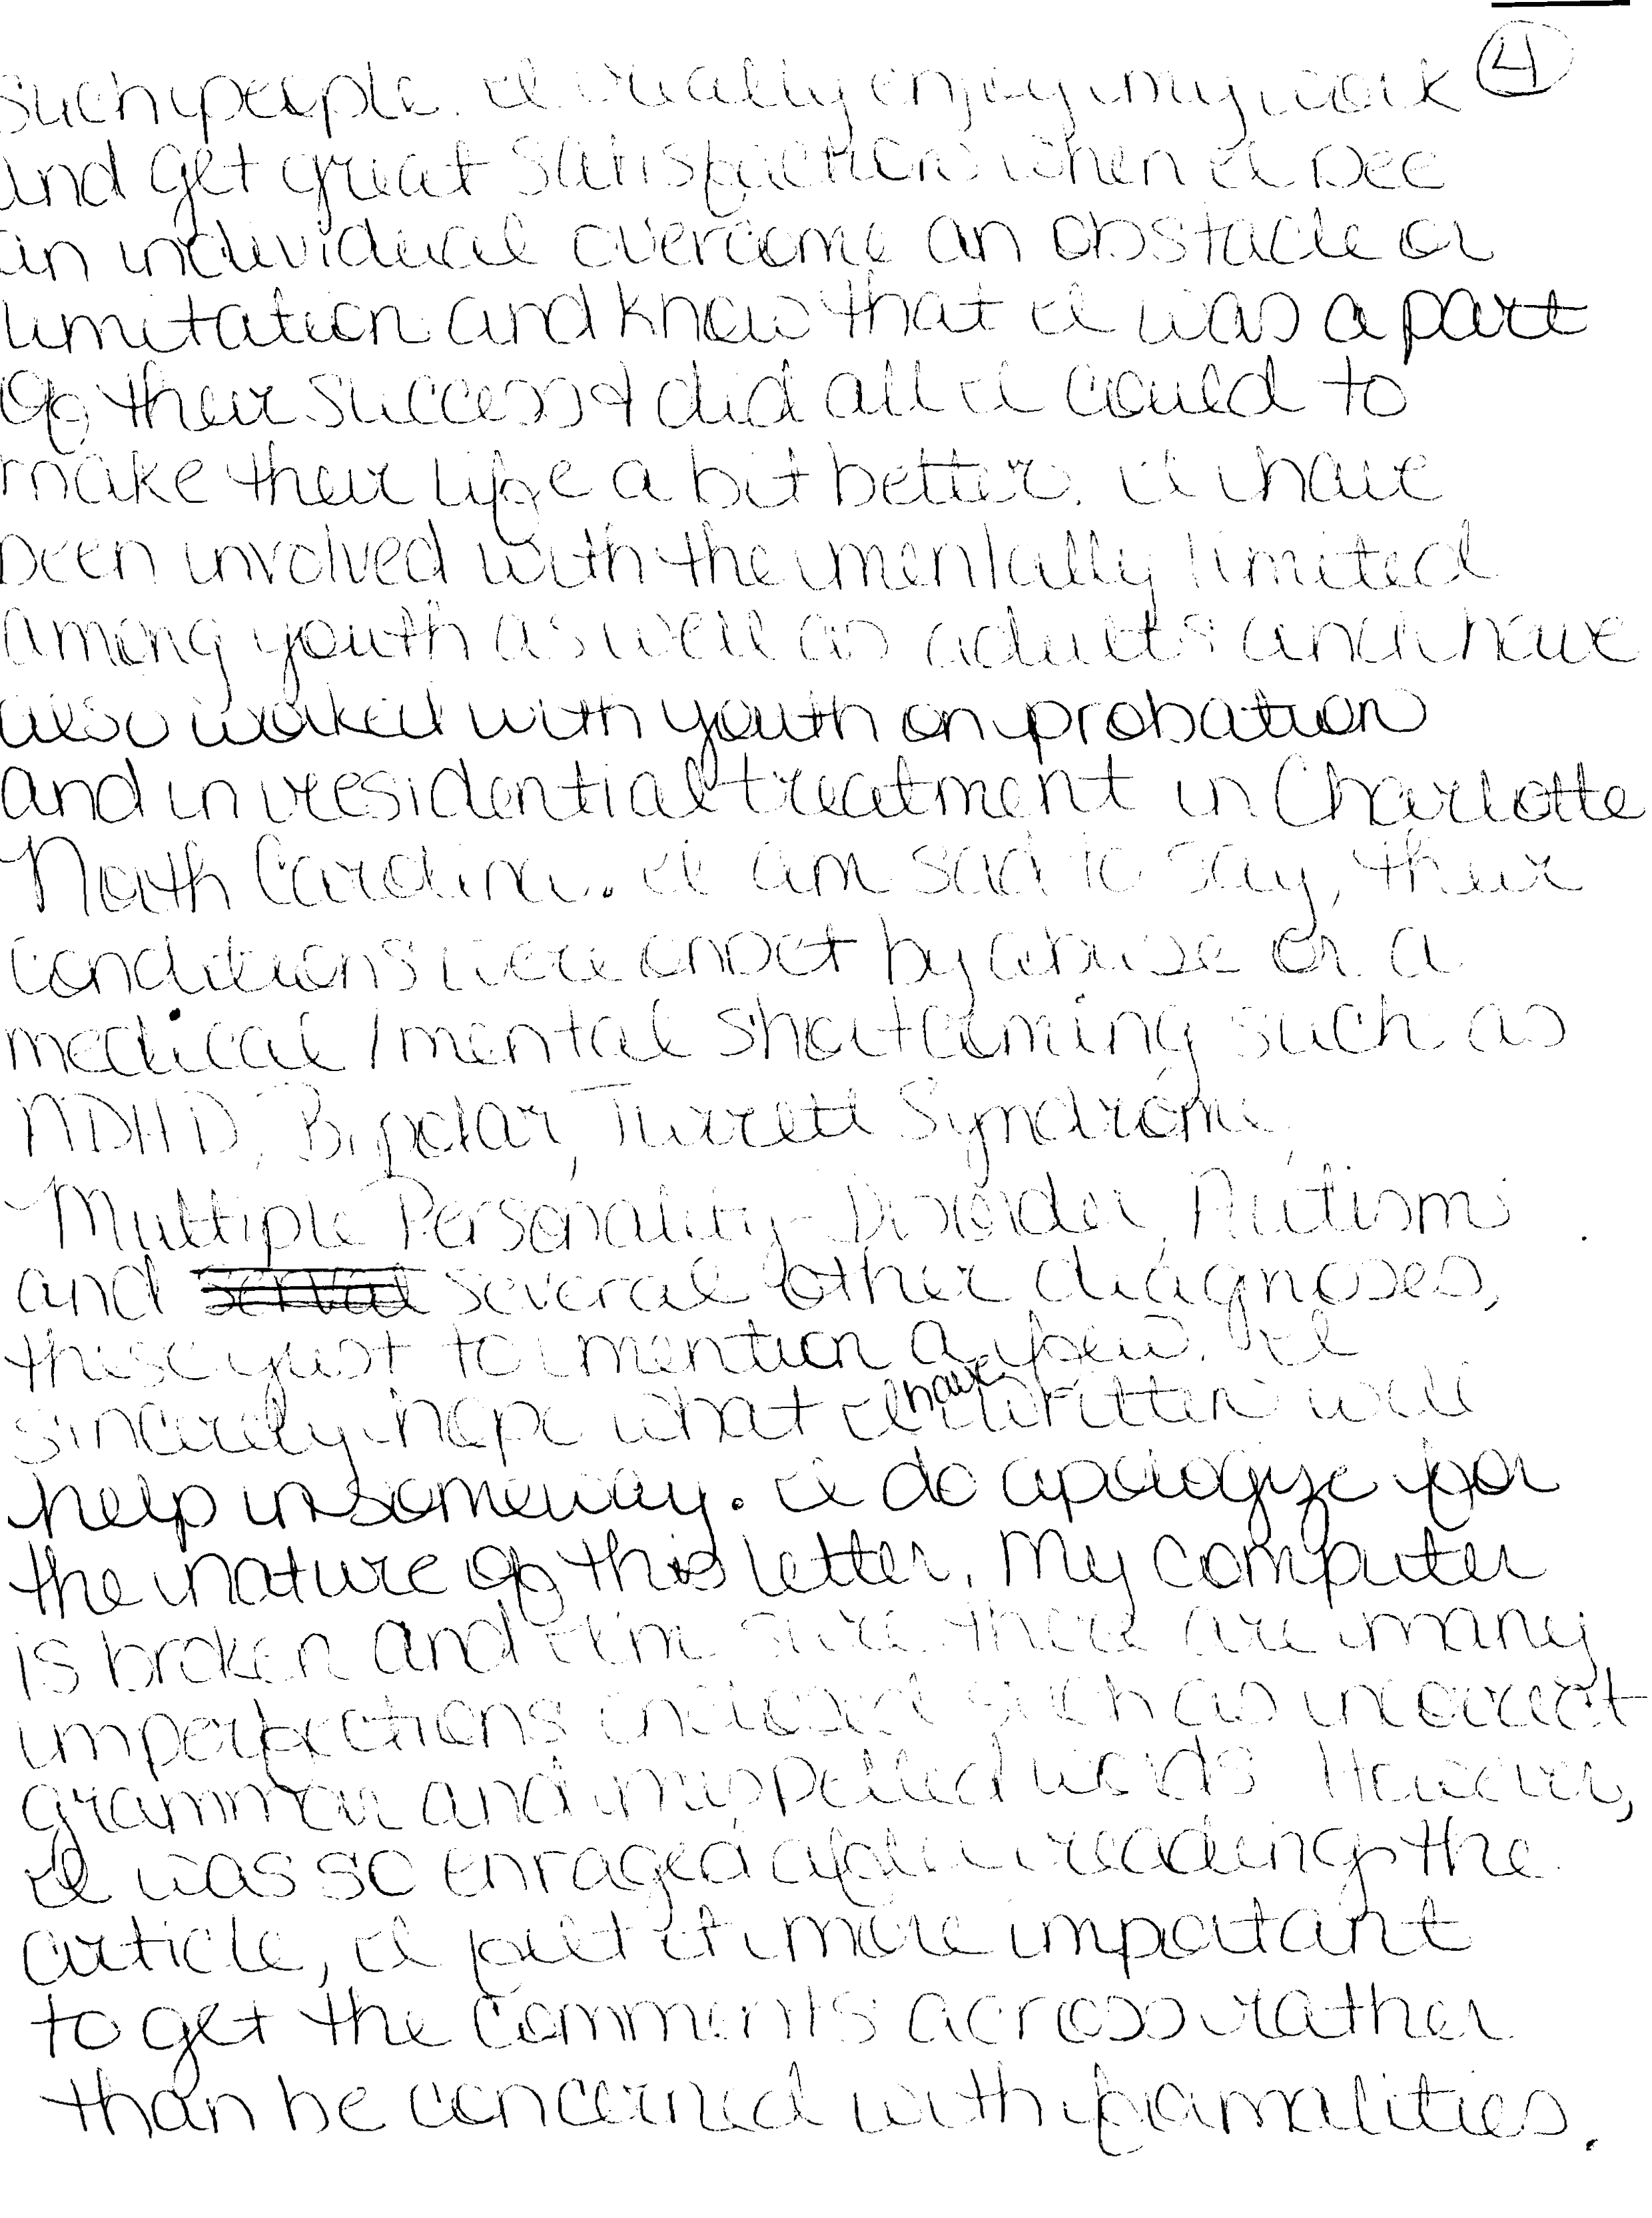 ④
such people. I really enjoy my work
and get great satisfaction when I see
an individual overcome an obstacle or
limitation and know that I was a part
of their success & did all I could to
make their life a bit better. I have
been involved with the mentally limited
among youth as well as adults and have
also worked with youth on probation
and in residential treatment in Charlotte
North Carolina. I am sad to say, their
conditions were onset by abuse or a
medical/mental shortcoming such as
ADHD, Bipolar, Turrett Syndrome,
Multiple Personality Disorder, Autism
and several other diagnoses,
these just to mention a few. I
sincerely hope what I have written will
help in someway. I do apologize for
the nature of this letter. My computer
is broken and I'm sure there are many
imperfections enclosed such as incorrect
grammar and mispelled words. However,
I was so enraged after reading the
article, I felt it more important
to get the comments across rather
than be concerned with formalities.